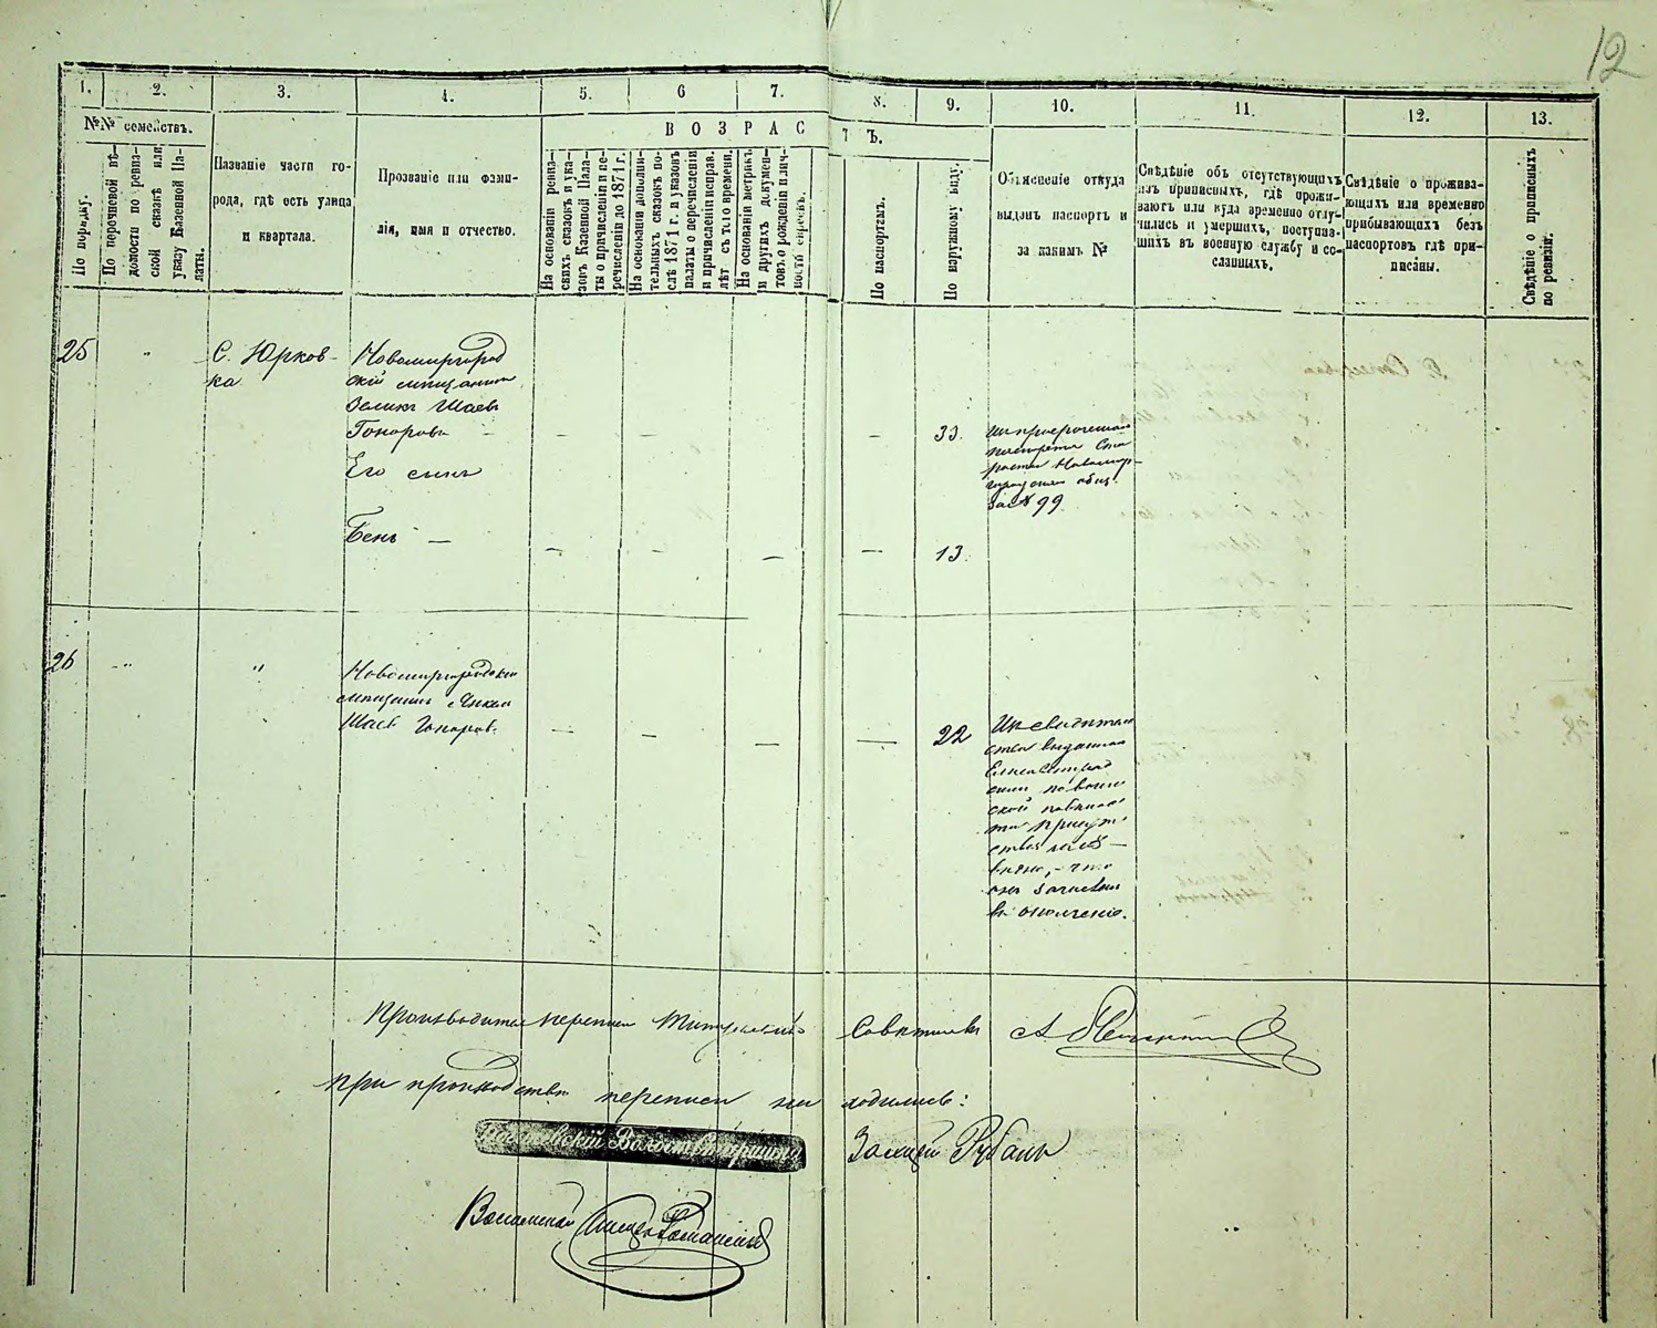 12
1. 2. 3. 4. 5. 6 7. 8. 9. 10. 11. 12. 13.
№№ семействъ.
По порядку.
По перечневой вѣ-
домости по ревиз-
ской сказкѣ или
указу Казенной Па-
латы.
Названіе части го-
рода, гдѣ есть улица
и квартала.
Прозваніе или фами-
лія, имя и отчество.
ВОЗРАСТЪ.
На основаніи ревиз-
скихъ сказокъ и ука-
зовъ Казенной Пала-
ты о причисленіи и пе-
речисленіи до 1871 г.
На основаніи дополни-
тельныхъ сказокъ по-
слѣ 1871 г. и указовъ
палаты о перечисленіи
и причисленіи исправ.
лѣт съ того времени.
На основаніи метракъ
и другихъ докумен-
товъ о рожденіи и лич-
ности евреевъ.
По паспортамъ.
По наружному виду.
Объясненіе откуда
выданъ паспортъ и
за какимъ №
Свѣдѣніе объ отсутствующихъ
изъ приписныхъ, гдѣ прожи-
ваютъ или куда временно отлу-
чились и умершихъ, поступив-
шихъ въ военную службу и со-
сланныхъ.
Свѣдѣніе о прожива-
ющихъ или временно
прибывающихъ безъ
паспортовъ гдѣ при-
писаны.
Свѣдѣніе о приписныхъ
по ревизіи.
25 " С. Юрков-
ка
Новомиргород
скій мѣщанинъ
Зеликъ Шаевъ
Гоноровъ — — — — 33.
Его сынъ
Бень — — — — — 13.
Ст
роста Новомир-
городскаго общ.
за № 99
26 " "
Новомиргородскій
мѣщанинъ Янкель
Шаев. Гоноров. — — — — 22
Изъ свидѣтель
ства выданнаго
Елисаветград
скимъ по воин
ской повинос
ти присут
ствія
видно, – что
онъ зачисленъ
въ ополченіе.
Производитель переписи Титулярный Совѣтникъ А.
При производствѣ переписи находились:
Волост. Старшина
Рубанъ
Волостной Писарь